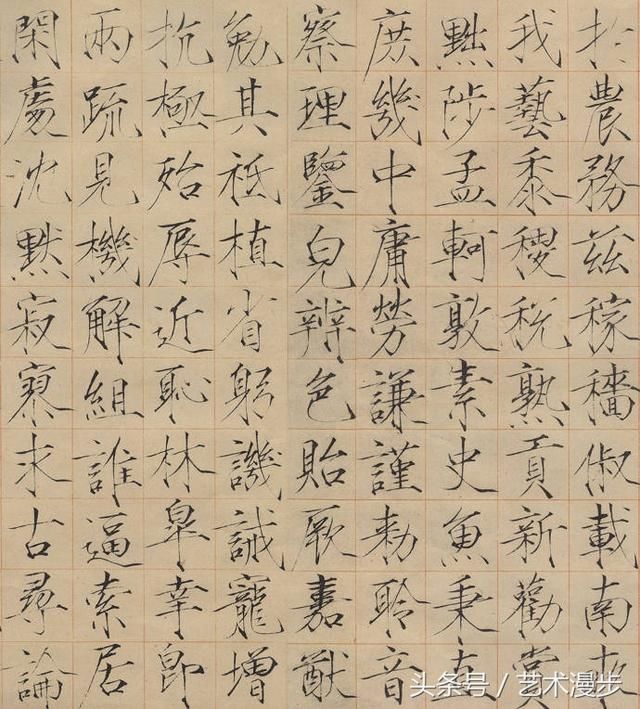 扵農務茲稼穡俶載南畝
我藝黍稷稅熟貢新勸賞
黜陟孟軻敦素史魚秉直
庶幾中庸勞謙謹勅聆音
察理鑒皃辨色貽厥嘉猷
勉其祗植省躬譏誡寵增
抗極殆辱近恥林皋幸即
兩疏見機解組誰逼索居
閑處沈默寂寥求古尋論
头条号 / 艺术漫步